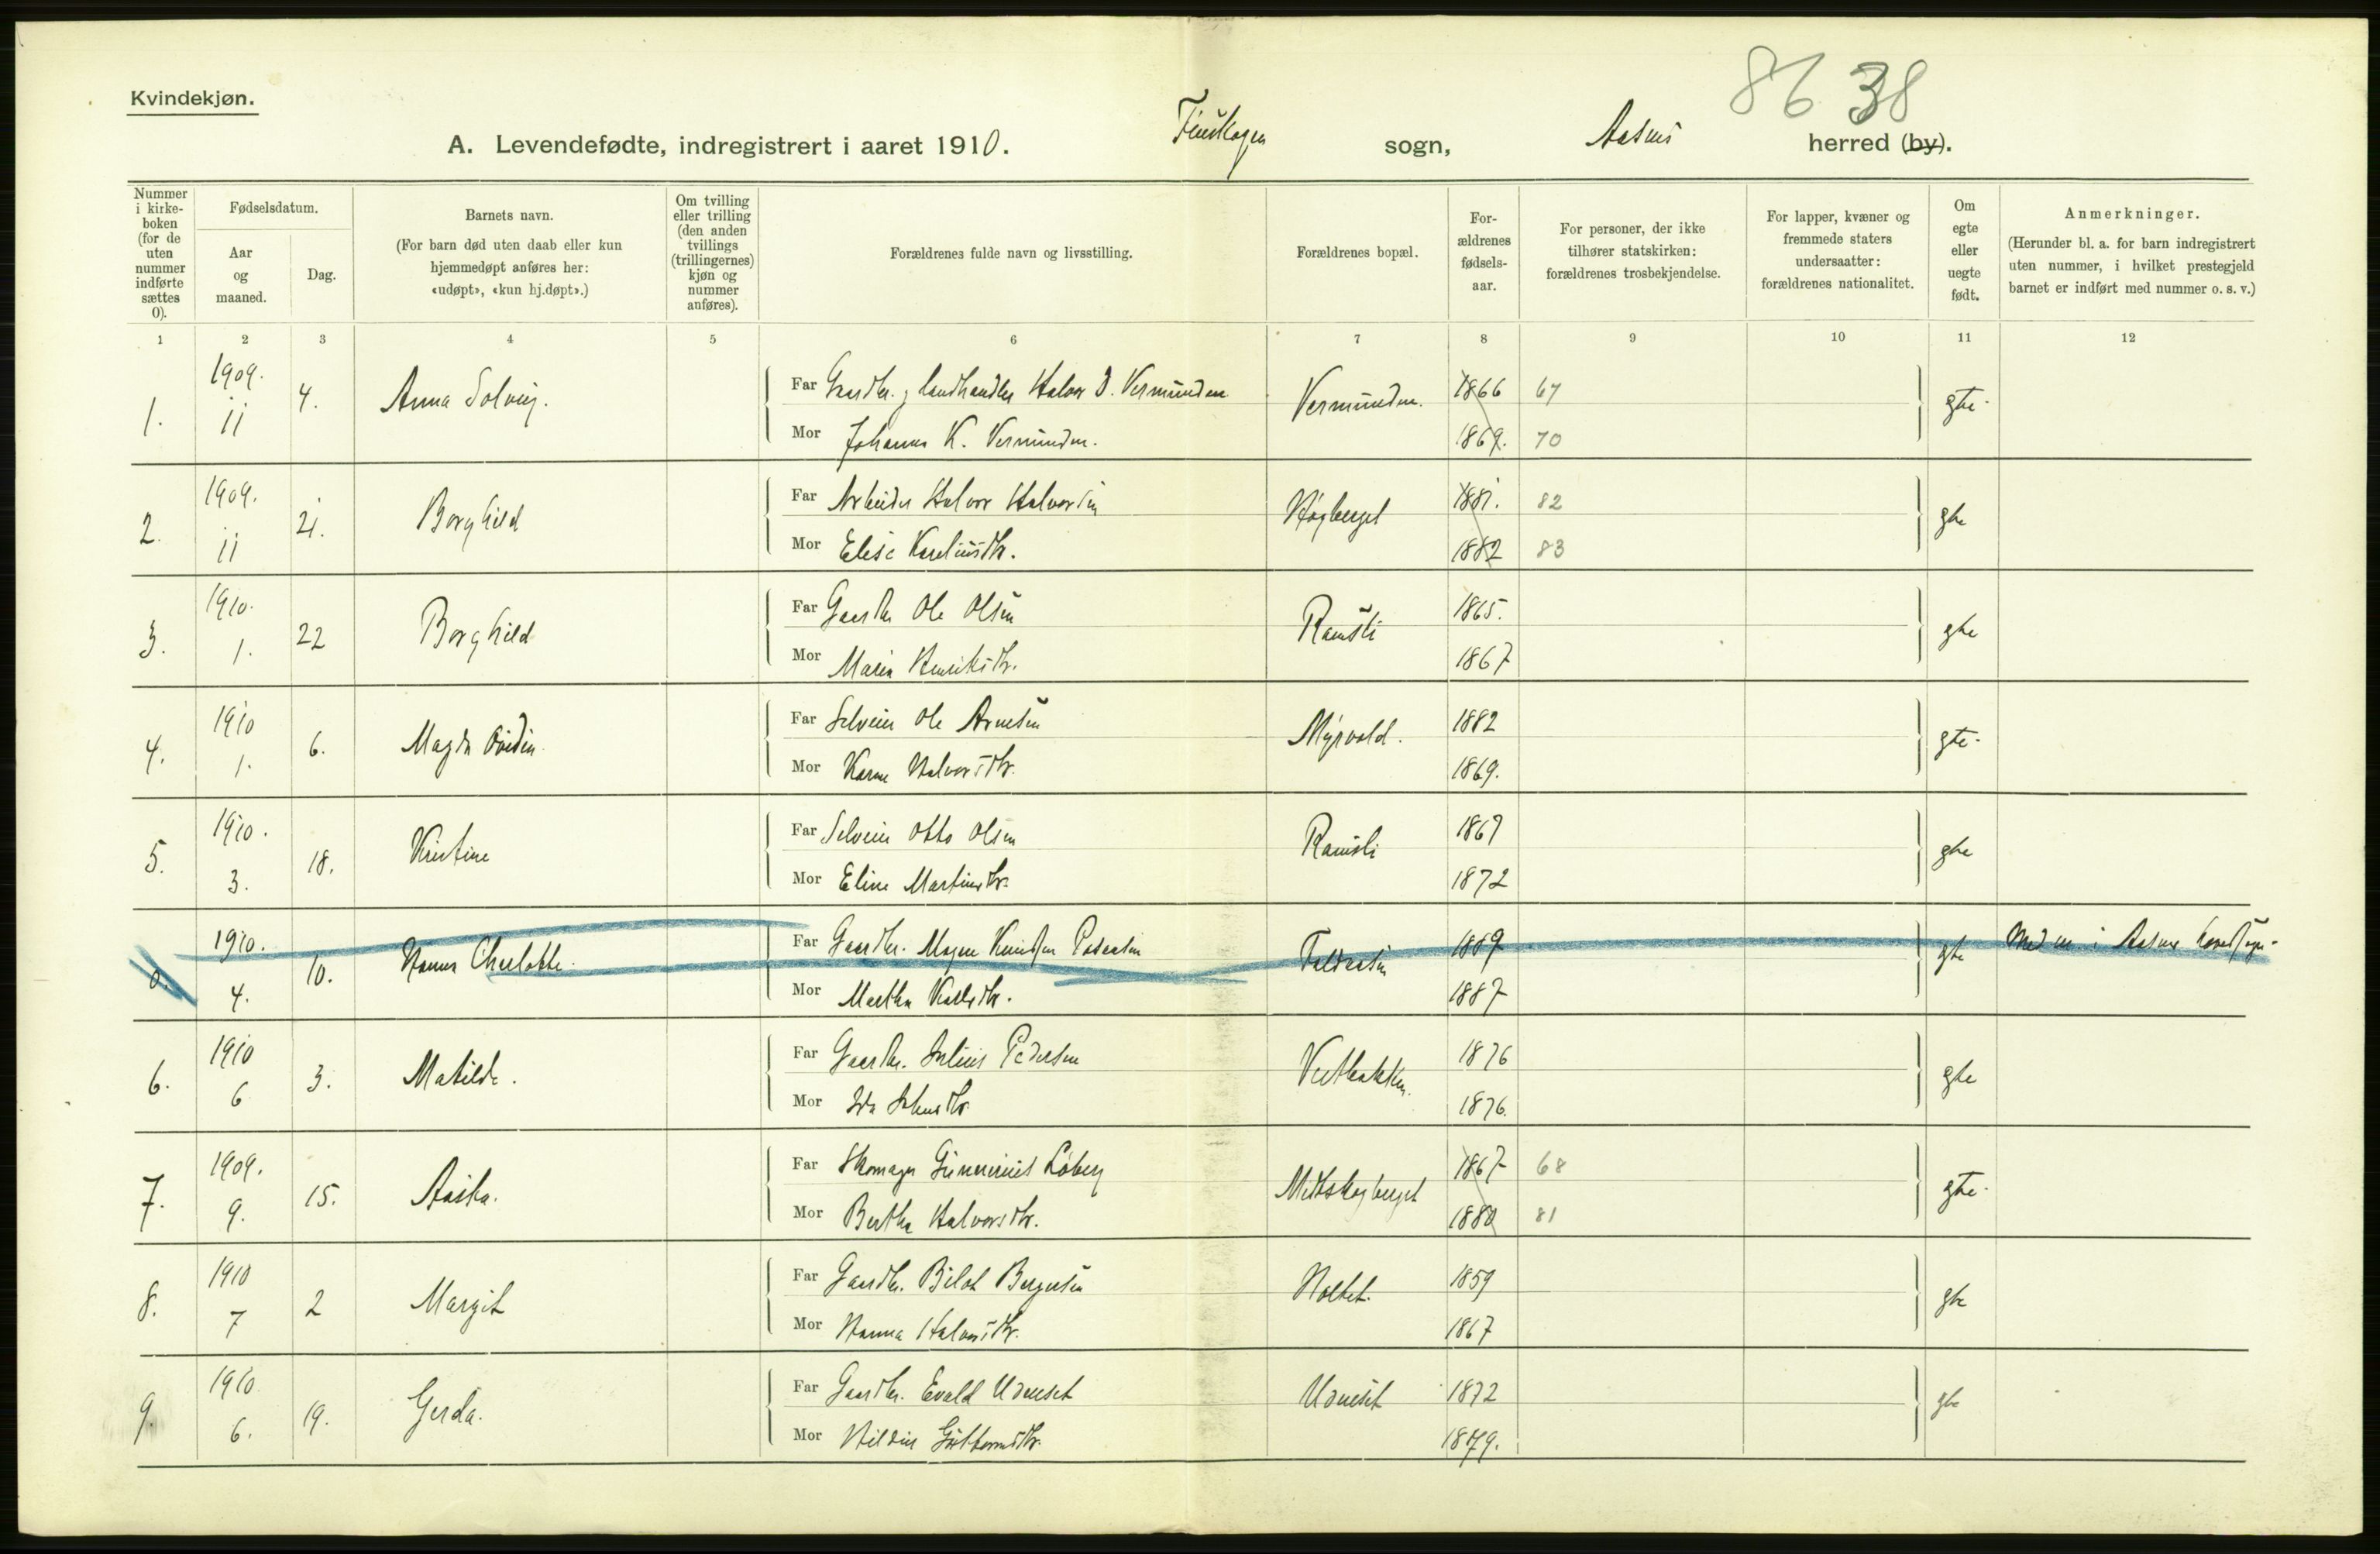 8638
Kvindekjøn.
A. Levendefødte, indregistrert i aaret 1910. Finskogen sogn, Aasnes herred (by).
Nummer i kirke-boken (for de uten nummer indførte sættes 0).
Fødselsdatum.
Aar og maaned.
Dag.
Barnets navn.
(For barn død uten daab eller kun hjemmedøpt anføres her: «udøpt», «kun hj.døpt».)
Om tvilling eller trilling (den anden tvillings (trillingernes) kjøn og nummer anføres).
Forældrenes fulde navn og livsstilling.
Forældrenes bopæl.
For-ældrenes fødsels-aar.
For personer, der ikke tilhører statskirken: forældrenes trosbekjendelse.
For lapper, kvæner og fremmede staters undersaatter: forældrenes nationalitet.
Om egte eller uegte født.
Anmerkninger.
(Herunder bl. a. for barn indregistrert uten nummer, i hvilket prestegjeld barnet er indført med nummer o. s. v.)
1 2 3 4 5 6 7 8 9 10 11 12
1. 1909. 11 4. Anna Solveig. Far Gaardbr. landhandler Halvor Vermunden Vermunden. 1866 67 gte
Mor Johanna K. Vermunden. 1869. 70
2. 1909. 11 21. Borghild Far Arbeider Halvor Halvorsen Høgberget 1881. 82 gte
Mor Elise 1882 83
3. 1910. 1. 22 Borghild Far Gaardbr Ole Olsen 1865. gte
Mor Maria Henriksdtr. 1867
4. 1910 1. 6. Magda Far Selveier Ole Arnesen Myrvold. 1882 gte
Mor Karen Halvorsdtr. 1869.
5. 1910. 3. 18. Kristine Far Selveier Otto Olsen 1867 gte
Mor Eline Martinsdtr. 1872
0. 1910. 4. 10. Hanna Charlotte. Far Gaardbr. Magne Knudsen 1889 gte Med nr. i Aasnes hovedsogn.
Mor Martha Karlsdtr. 1887
6. 1910 6 3. Matilde. Far Gaardbr. Julius Pedersen 1876 gte
Mor Ida 1876.
7. 1909. 9. 15. Aasta. Far Skomager Gunnerius Løberg Midtskogberget 1867 68 gte
Mor Bertha Halvorsdtr. 1880 81
8. 1910 7 2 Margit Far Gaardbr. Bergersen 1859 gte
Mor Hanna Halvorsdtr. 1867
9. 1910 6. 19. Gerda. Far Gaardbr. Evald Udneset Udneset 1872 gte
Mor Guttormsdtr. 1879.